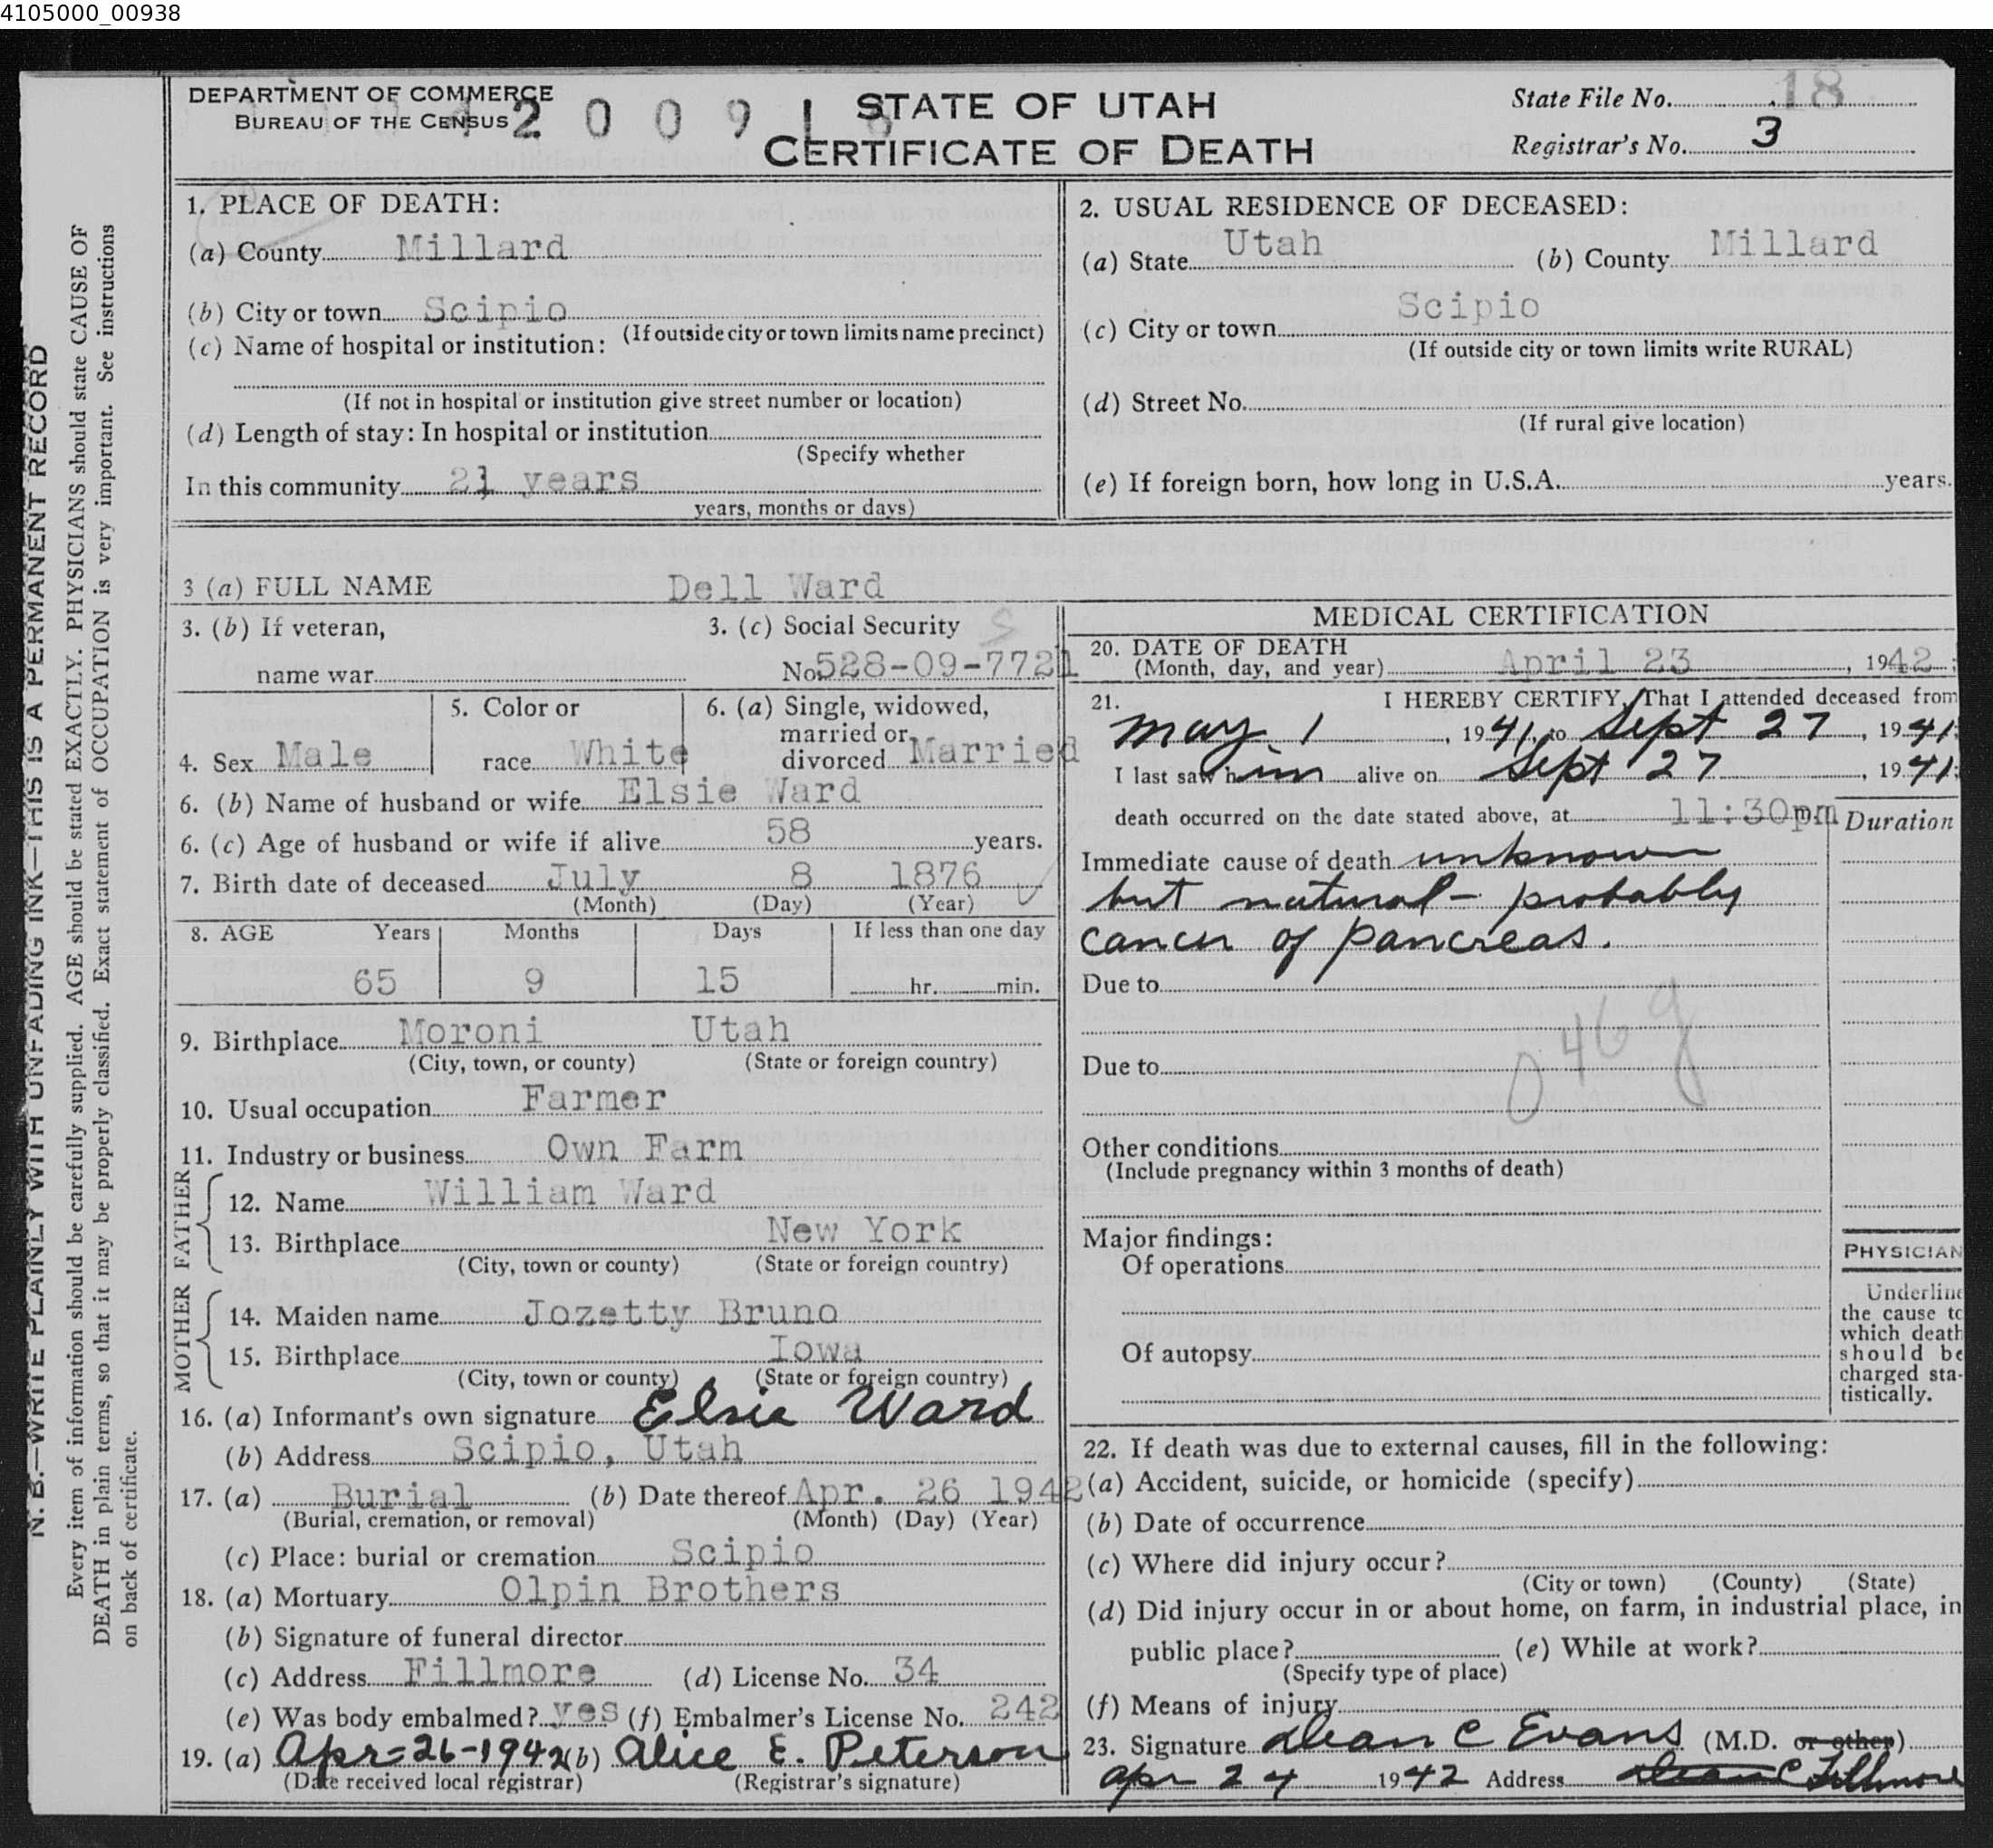 4105000_00938
DEPARTMENT OF COMMERCE
BUREAU OF THE CENSUS
2 0 0 9 1 8
STATE OF UTAH
CERTIFICATE OF DEATH
State File No. 18
Registrar's No. 3
N. B.—WRITE PLAINLY WITH UNFADING INK—THIS IS A PERMANENT RECORD
Every item of information should be carefully supplied. AGE should be stated EXACTLY. PHYSICIANS should state CAUSE OF
DEATH in plain terms, so that it may be properly classified. Exact statement of OCCUPATION is very important. See instructions
on back of certificate.
1. PLACE OF DEATH:
(a) County Millard
(b) City or town Scipio
(If outside city or town limits name precinct)
(c) Name of hospital or institution:
(If not in hospital or institution give street number or location)
(d) Length of stay: In hospital or institution
(Specify whether
In this community 21 years
years, months or days)
2. USUAL RESIDENCE OF DECEASED:
(a) State Utah (b) County Millard
(c) City or town Scipio
(If outside city or town limits write RURAL)
(d) Street No.
(If rural give location)
(e) If foreign born, how long in U.S.A. years.
3 (a) FULL NAME Dell Ward
3. (b) If veteran,
name war
3. (c) Social Security
No. 528-09-7721
S
4. Sex Male
5. Color or
race White
6. (a) Single, widowed,
married or
divorced Married
6. (b) Name of husband or wife Elsie Ward
6. (c) Age of husband or wife if alive 58 years.
7. Birth date of deceased July 8 1876
(Month) (Day) (Year)
8. AGE Years Months Days If less than one day
65 9 15 hr. min.
9. Birthplace Moroni Utah
(City, town, or county) (State or foreign country)
10. Usual occupation Farmer
11. Industry or business Own Farm
FATHER
12. Name William Ward
13. Birthplace New York
(City, town or county) (State or foreign country)
MOTHER
14. Maiden name Jozetty Bruno
15. Birthplace Iowa
(City, town or county) (State or foreign country)
16. (a) Informant's own signature Elsie Ward
(b) Address Scipio, Utah
17. (a) Burial (b) Date thereof Apr. 26 1942
(Burial, cremation, or removal) (Month) (Day) (Year)
(c) Place: burial or cremation Scipio
18. (a) Mortuary Olpin Brothers
(b) Signature of funeral director
(c) Address Fillmore (d) License No. 34
(e) Was body embalmed? yes (f) Embalmer's License No. 242
19. (a) Apr=26-1942 (b) Alice E. Peterson
(Date received local registrar) (Registrar's signature)
MEDICAL CERTIFICATION
20. DATE OF DEATH
(Month, day, and year) April 23, 1942;
21. I HEREBY CERTIFY, That I attended deceased from
May 1, 1941, to Sept 27, 1941;
I last saw him alive on Sept 27, 1941;
death occurred on the date stated above, at 11:30pm
Duration
Immediate cause of death unknown
but natural - probably
cancer of pancreas.
Due to
046g
Due to
Other conditions
(Include pregnancy within 3 months of death)
Major findings:
Of operations
Of autopsy
PHYSICIAN
Underline
the cause to
which death
should be
charged sta-
tistically.
22. If death was due to external causes, fill in the following:
(a) Accident, suicide, or homicide (specify)
(b) Date of occurrence
(c) Where did injury occur?
(City or town) (County) (State)
(d) Did injury occur in or about home, on farm, in industrial place, in
public place? (e) While at work?
(Specify type of place)
(f) Means of injury
23. Signature Dean C Evans (M.D. or other)
Apr 24 1942 Address Fillmore